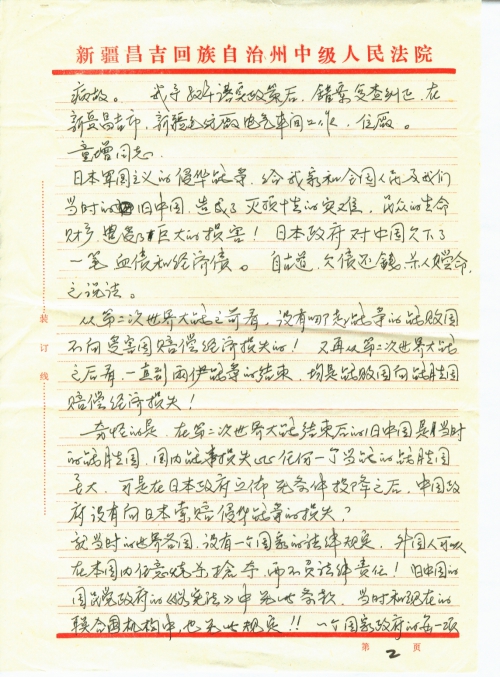 新疆昌吉回族自治州中级人民法院
病故。 我于84年落实政策后,错案复查纠正,在
新疆昌吉市,新疆毛纺厂电气车间工作,住厂。
童增同志:
日本军国主义的侵华战争,给我家和全国人民及我们
当时的旧中国,造成了灭损十去的灾难,民众的生命
财产,遭受了巨大的损害!日本政府对中国欠下了
一笔血债和经济债。 自古道,欠债还钱,杀人偿命,
之说法。
从第二次世界大战之前看,没有哪个走战争的战败国
不向受害国赔偿经济损失的! 又再从第二次世界大战
之后看,一直到两伊战争的结束,均是战败国向战胜国
赔偿经济损失!
奇怪的是,在第二次世界大战结束后的旧中国是当时
的战胜国,国内战事损失比任何一个当战的战胜国
要大,可是在日本政府宣佈无条件投降之后,中国政
府没有向日本索赔侵华战争的损失?
就当时的世界各国,没有一个国家的法律规定,外国人可以
在本国内任意烧杀抢夺,而不负法律责任!旧中国的
国民党政府的《宪法》中无此条款,当时和现在的
联合国机构中,也无此规定!!一个国家政府的每一项
装订线
第 2 页